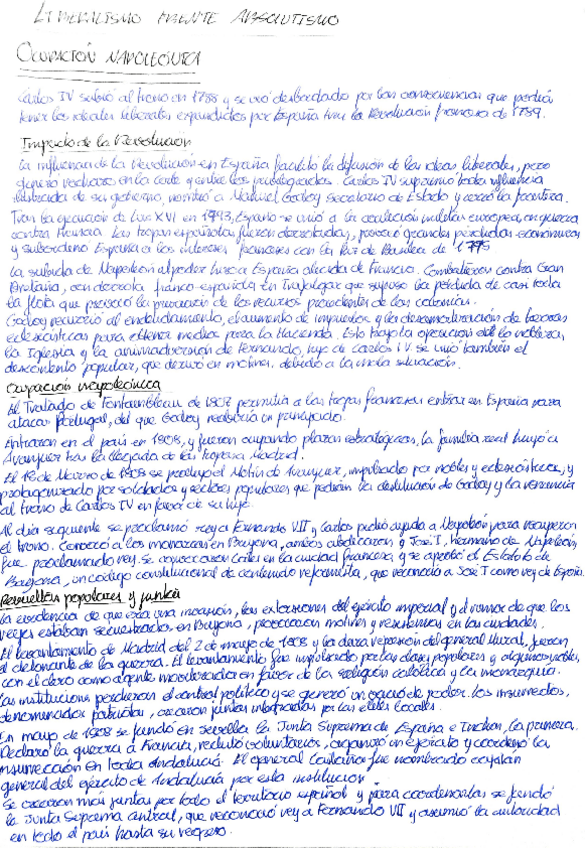 LIBERALISMO FRENTE ABSOLUTISMO
OCUPACIÓN NAPOLEÓNICA
Carlos IV subió al trono en 1788 y se vió desbordado por las consecuencias que podían
tener los ideales liberales expandidos por España tras la Revolución francesa de 1789.
Impacto de la Revolución
La influencia de la Revolución en España facilitó la difusión de las ideas liberales, pero
generó rechazo en la corte y entre los privilegiados. Carlos IV suprimió toda influencia
ilustrada de su gobierno, nombró a Manuel Godoy secretario de Estado y cerró la frontera.
Tras la ejecución de Luis XVI en 1793, España se unió a la coalición militar europea en guerra
contra Francia. Las tropas españolas fueron derrotadas, provocó grandes pérdidas económicas
y subordinó España a los intereses franceses con la Paz de Basilea de 1795
La subida de Napoleón al poder hizo a España aliada de Francia. Combatieron contra Gran
Bretaña, con derrota franco-española en Trafalgar que supuso la pérdida de casi toda
la flota que provocó la de los recursos procedentes de las colonias.
Godoy recurrió al endeudamiento, el aumento de impuestos y la desamortización de bienes
eclesiásticos para obtener medios para la Hacienda. Esto trajo la oposición de la nobleza,
la Iglesia y la animadversión de Fernando, hijo de Carlos IV. Se unió también el
descontento popular, que derivó en motines debido a la mala situación.
Ocupación napoleónica
El Tratado de Fontainebleau de 1807 permitía a las tropas francesas entrar en España para
atacar Portugal, del que Godoy recibiría un principado.
Entraron en el país en 1808, y fueron ocupando plazas estratégicas. La familia real huyó a
Aranjuez tras la llegada de las tropas a Madrid.
El 18 de Marzo de 1808 se produjo el Motín de Aranjuez, impulsado por nobles y eclesiásticos, y
protagonizado por soldados y sectores populares que pedían la destitución de Godoy y la renuncia
al trono de Carlos IV en favor de su hijo.
Al día siguiente se proclamó rey a Fernando VII y Carlos pidió ayuda a Napoleón para recuperar
el trono. Convocó a los monarcas en Bayona, ambos abdicaron y José I, hermano de Napoleón
fue proclamado rey. Se convocaron Cortes en la ciudad francesa y se aprobó el Estatuto de
Bayona, un código constitucional de contenido reformista, que reconoció a José I como rey de España.
Revueltas populares y juntas
La evidencia de que era una invasión, las extorsiones del ejército imperial y el rumor de que los
reyes estaban secuestrados en Bayona, provocaron motines y resistencias en las ciudades.
El levantamiento de Madrid del 2 de mayo de 1808 y la dura represión del general Murat, fueron
el detonante de la guerra. El levantamiento fue impulsado por las clases populares y algunos nobles,
con el clero como agente movilizador en favor de la religión católica y la monarquía.
Las instituciones perdieron el control político y se generó un vacío de poder. Los insurrectos,
denominados patriotas, crearon juntas integradas por las élites locales.
En mayo de 1808 se fundó en Sevilla la Junta Suprema de España e Indias, la primera.
Declaró la guerra a Francia, reclutó voluntarios, organizó un ejército y coordinó la
insurrección en toda Andalucía. El general Castaños fue nombrado capitán
general del ejército de Andalucía por esta institución.
Se crearon más juntas por todo el territorio español y para coordenarlas se fundó
la Junta Suprema Central, que reconoció rey a Fernando VII y asumió la autoridad
en todo el país hasta su regreso.